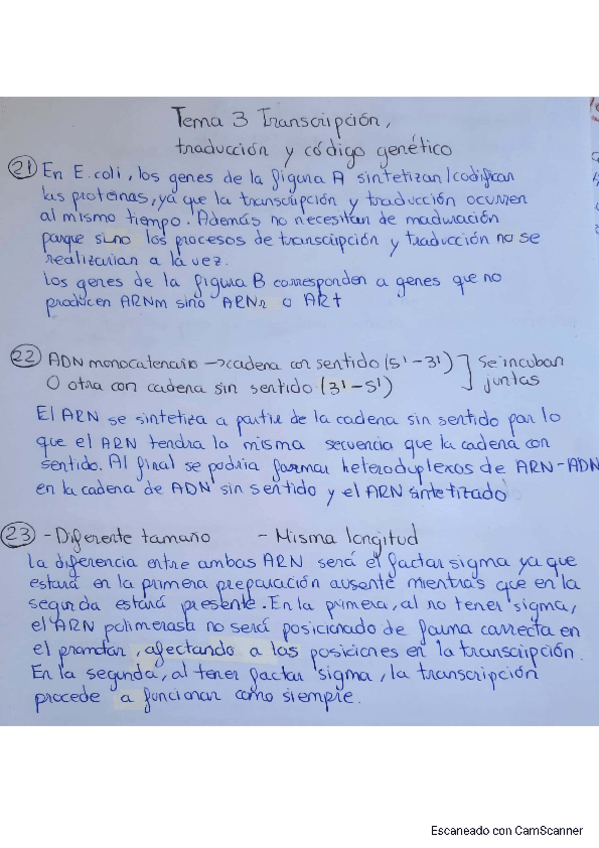 Tema 3 Transcripción,
traducción y código genético
21 En E.coli, los genes de la figura A sintetizan/codifican
las proteínas, ya que la transcripción y traducción ocurren
al mismo tiempo. Además no necesitan de maduración
porque sino los procesos de transcripción y traducción no se
realizarian a la vez.
Los genes de la figura B corresponden a genes que no
producen ARNm sino ARNr o ARt
22 ADN monocatenario → cadena con sentido (5'-3') ] Se incuban
O otra con cadena sin sentido (3'-5') juntas
El ARN se sintetiza a partir de la cadena sin sentido por lo
que el ARN tendra la misma secuencia que la cadena con
sentido. Al final se podría formar heteroduplexos de ARN-ADN
en la cadena de ADN sin sentido y el ARN sintetizado
23 - Diferente tamaño - Misma longitud
La diferencia entre ambas ARN será el factor sigma ya que
estará en la primera preparación ausente mientras que en la
segunda estará presente. En la primera, al no tener sigma,
el ARN polimerasa no será posicionado de forma correcta en
el promotor, afectando a las posiciones en la transcripción.
En la segunda, al tener factor sigma, la transcripción
procede a funcionar como siempre.
Escaneado con CamScanner